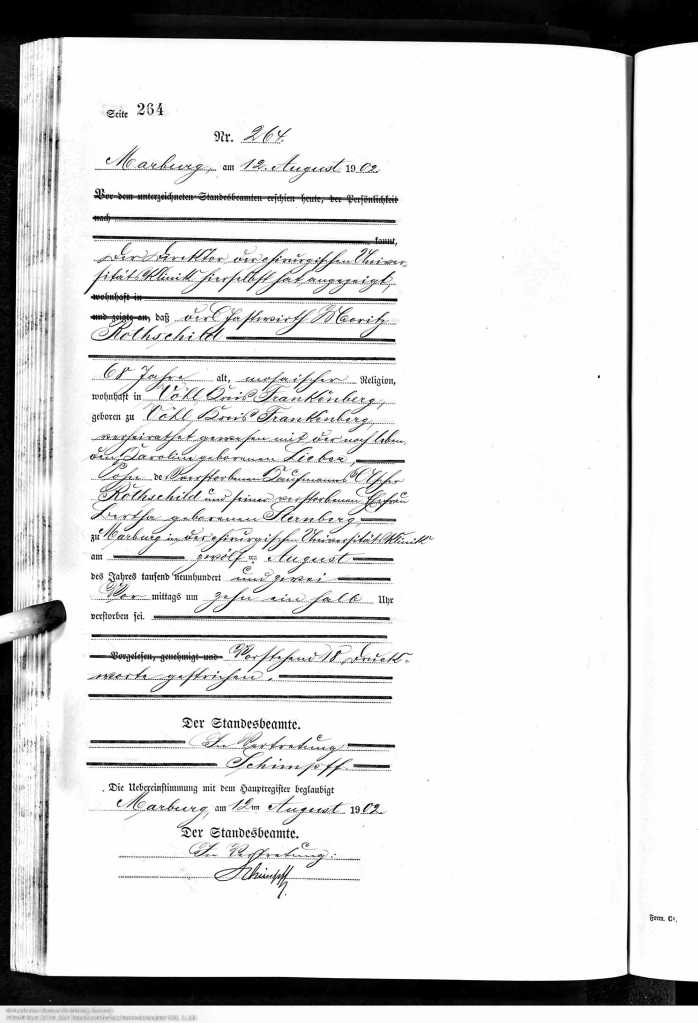 Seite 264
Nr. 264.
Marburg, am 12. August 1902
Vor dem unterzeichneten Standesbeamten erschien heute, der Persönlichkeit
nach
kannt,
Der Direktor der chirurgischen Univer-
sitäts Klinik hierselbst hat angezeigt,
wohnhaft in
und zeigte an, daß der Gastwirth Moritz
Rothschild
68 Jahre alt, mosaischer Religion,
wohnhaft in Vöhl Kreis Frankenberg,
geboren zu Vöhl, Kreis Frankenberg,
verheirathet gewesen mit der noch leben
den Karoline geborenen Lieber,
Sohn des verstorbenen Kaufmanns Ascher
Rothschild und seiner verstorbenen Ehefrau
Bertha geborenen Sternberg,
zu Marburg in der chirurgischen Universitäts Klinik
am zwölf = August
des Jahres tausend neunhundert und zwei
Vor mittags um zehn ein halb Uhr
verstorben sei.
Vorgelesen, genehmigt und Vorstehend 18 Druck-
worte gestrichen.
Der Standesbeamte.
In Vertretung
Schimpff.
Die Uebereinstimmung mit dem Hauptregister beglaubigt
Marburg, am 12ten August 1902
Der Standesbeamte.
In Vertretung:
Schimpff.
Form. C¹.